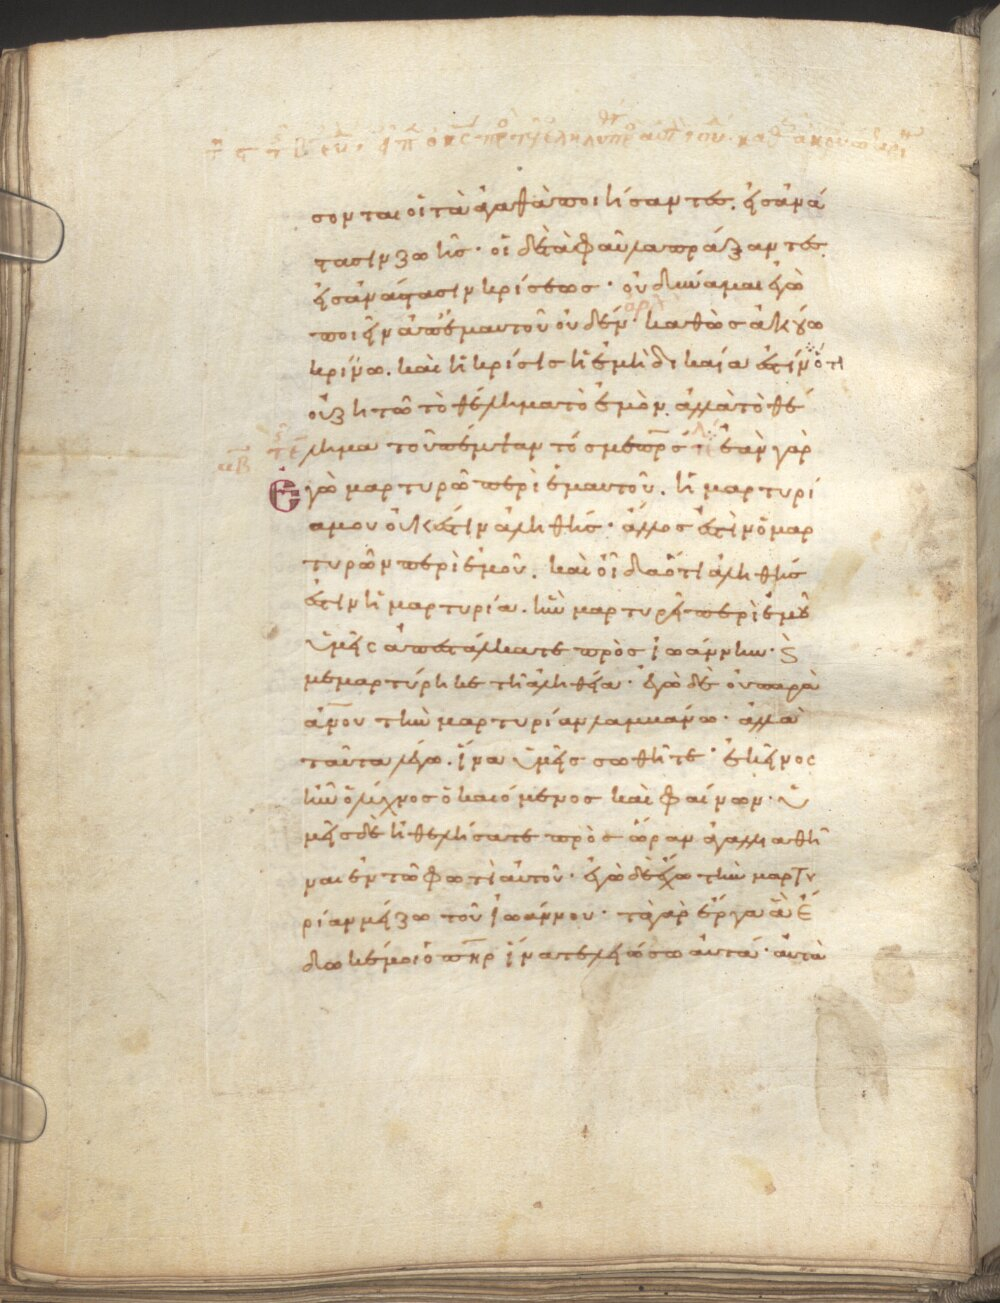 σονται οἱ τὰ ἀγαθὰ ποιήσαντες. εἰς ἀνά
τασιν ζωῆς· οἱ δὲ τὰ φαῦλα πράξαντες
εἰς ἀνάστασιν κρίσεως· οὐ δύναμαι ἐγὼ
ποιεῖν ἀπ' ἐμαυτοῦ οὐδέν· καθὼς ἀκούω
κρίνω. καὶ ἡ κρίσις ἡ ἐμὴ δικαία ἐστίν ὅτι
οὐ ζητῶ τὸ θέλημα τὸ ἐμὸν ἀλλὰ τὸ θέ
λημα τοῦ πέμψαντός με π̅ρ̅ς ἐὰν γὰρ
Ἐγὼ μαρτυρῶ περὶ ἐμαυτοῦ. ἡ μαρτυρί
α μου οὐκ ἔστιν ἀληθής· ἄλλος ἐστὶν ὁ μαρ
τυρῶν περὶ ἐμοῦ. καὶ οἶδα ὅτι ἀληθής
ἐστιν ἡ μαρτυρία. ἣν μαρτυρεῖ περὶ ἐμοῦ
ὑμεῖς ἀπεστάλκατε πρὸς ἰωάννην· ϗ
μεμαρτύρηκε τῆ ἀληθεία· ἐγὼ δὲ οὐ παρὰ
α̅ν̅ου τὴν μαρτυρίαν λαμβάνω· ἀλλὰ
ταῦτα λέγω. ἵνα ὑμεῖς σωθῆτε· ἐκεῖνος
ἦν ὁ λύχνος ὁ καιόμενος καὶ φαίνων· ὑ
μεῖς δὲ ἠθελήσατε πρὸς ὥραν ἀγαλλιαθῆ
ναι ἐν τῶ φωτὶ αὐτοῦ· ἐγὼ δὲ ἔχω τὴν μαρτυ
ρίαν μείζω τοῦ ἰωάννου· τὰ γὰρ ἔργα ἃ ἔ
δωκέ μοι ὁ π̅η̅ρ ἵνα τελειώσω αὐτά· αὐτὰ